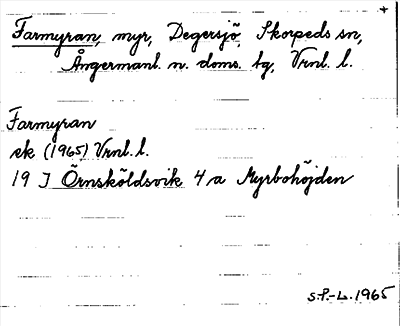 Farmyran, myr, Degersjö, Skorpeds sn,
Ångermanl. n. doms. tg, Vrnl. l.
Farmyran
ek (1965) Vrnl. l.
19 J Örnsköldsvik 4 a Myrbohöjden
S.P.-L. 1965